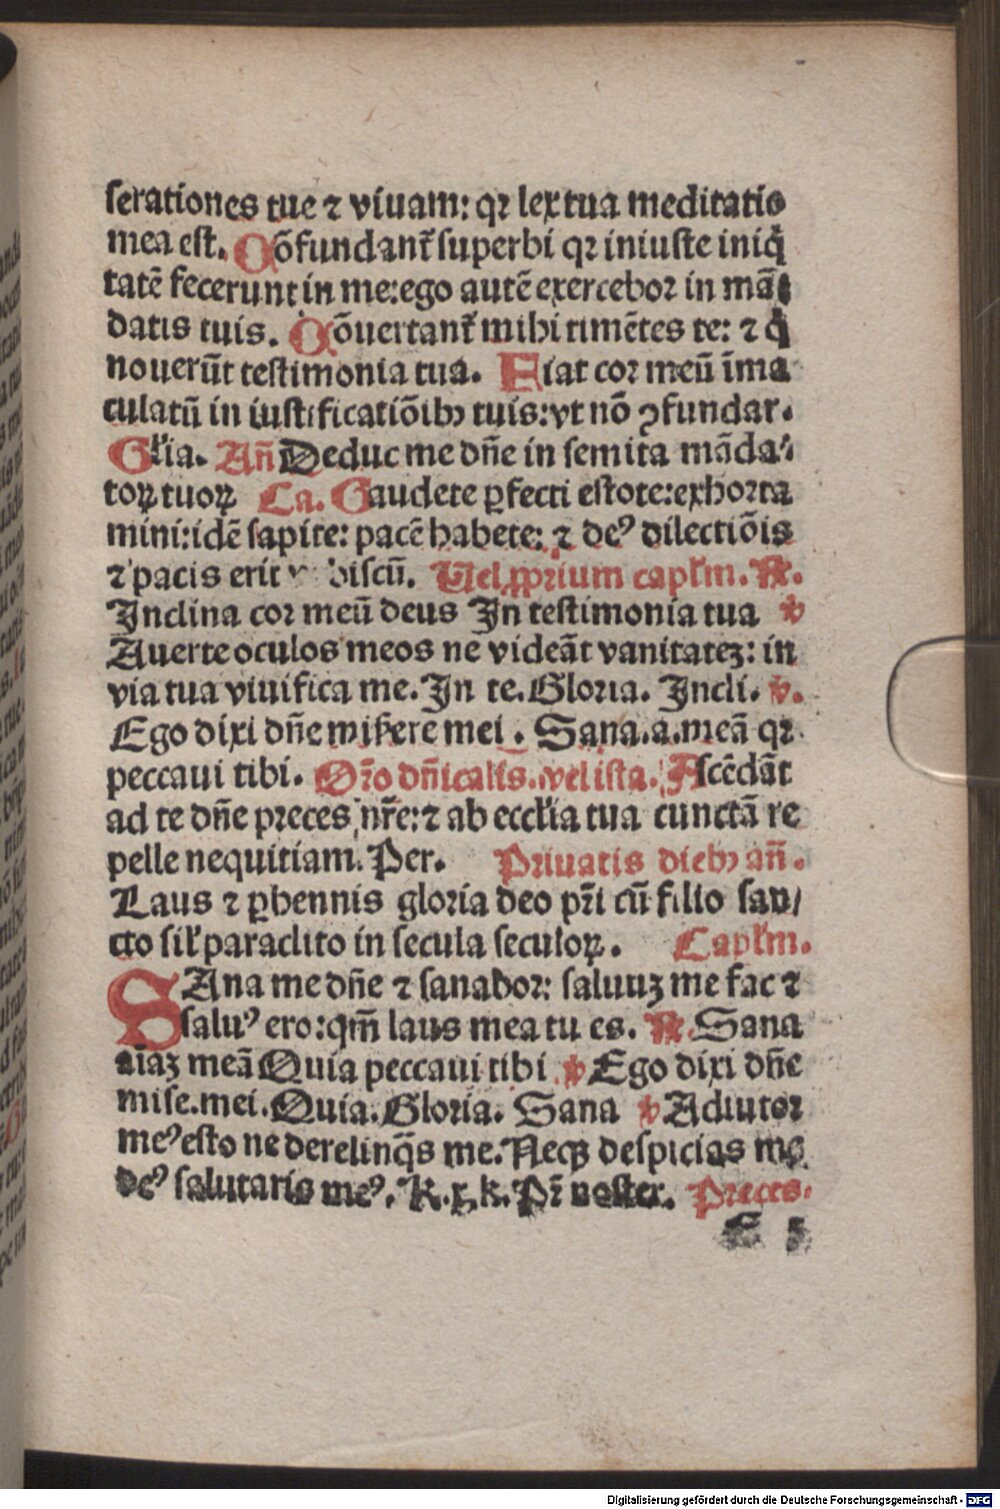 serationes tue ⁊ viuam: qꝛ lex tua meditatio
mea est. Cōfundant᷑ superbi qꝛ iniuste iniq̇
tatē fecerunt in me:ego autē exercebor in mā
datis tuis. Cōuertant᷑ mihi timētes te: ⁊ q̇
nouerūt testimonia tua. Fiat cor meū īma
culatū in iustificatiōibꝰ tuis:vt nō ꝯfundar.
Gl'ia. Añ Deduc me dñe in semita māda⸗
toꝝ tuoꝝ Ca. Gaudete ꝑfecti estote:exhorta
mini:idē sapite: pacē habete: ⁊ deꝰ dilectiōis
⁊ pacis erit biscū. Uel ꝓprium capl'm. ℟.
Inclina cor meū deus In testimonia tua ℣
Auerte oculos meos ne videāt vanitateꝫ: in
via tua viuifica me. In te. Gloria. Incli. ℣.
Ego dixi dñe miẜere mei. Sana.a.meā qꝛ
peccaui tibi. Or̄o dñicalis.vel ista. Ascēdāt
ad te dñe preces nr̄e:⁊ ab eccl'ia tua cunctā re
pelle nequitiam. Per. Priuatis diebꝰ añ.
Laus ⁊ ꝑhennis gloria deo pr̄i cū filio san/
cto sil' paraclito in secula seculoꝝ. Capl'm.
SAna me dñe ⁊ sanabor: saluuꝫ me fac ⁊
saluꝰ ero:qm̄ laus mea tu es. ℟ Sana
aīaꝫ meā Quia peccaui tibi ℣ Ego dixi dñe
mise.mei. Quia. Gloria. Sana ℣ Adiutor
meꝰ esto ne derelinq̄s me. Neqꝫ despicias me
deꝰ salutaris meꝰ. K.x.k. Pr̄ noster. Preces.
Digitalisierung gefördert durch die Deutsche Forschungsgemeinschaft - DFG